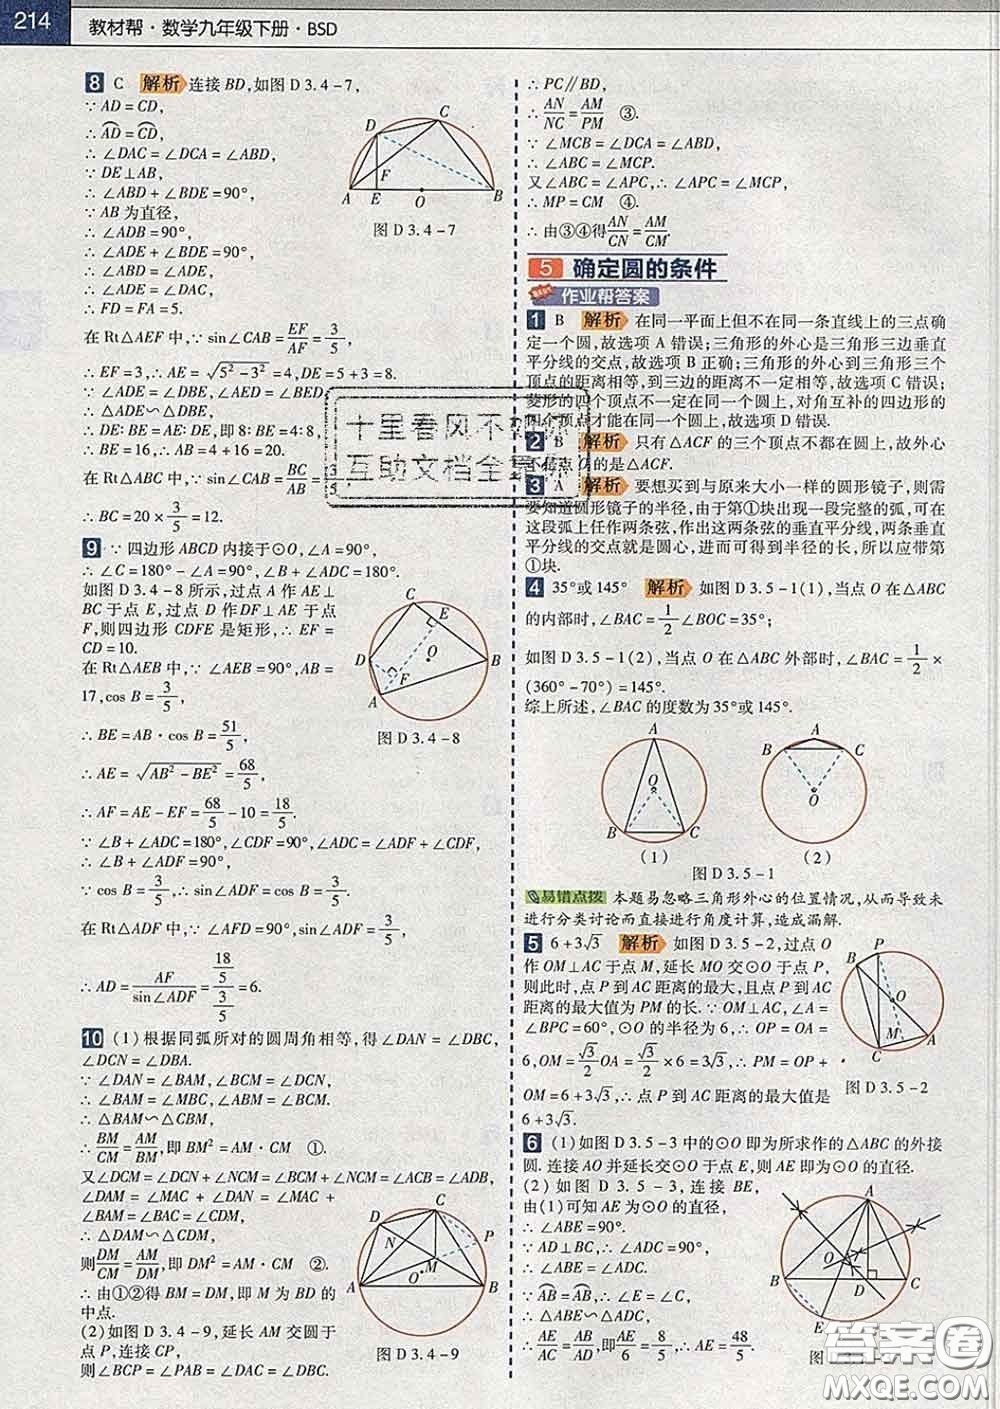 214
教材帮·数学九年级下册·BSD
8 C 解析 连接 BD,如图 D 3.4-7,
∵ AD=CD,
∴ ⌒AD=⌒CD,
∴ ∠DAC=∠DCA=∠ABD,
∵ DE⊥AB,
∴ ∠ABD+∠BDE=90°,
∵ AB 为直径,
∴ ∠ADB=90°,
∴ ∠ADE+∠BDE=90°,
∴ ∠ABD=∠ADE,
∴ ∠ADE=∠DAC,
∴ FD=FA=5.
在 Rt△AEF 中,∵ sin∠CAB=EF/AF=3/5,
∴ EF=3,∴ AE=√(5²-3²)=4,DE=5+3=8.
∵ ∠ADE=∠ABD,∠AED=∠BED
∴ △ADE∽△DBE,
∴ DE:BE=AE:DE,即 8:BE=4:8,
∴ BE=16,∴ AB=4+16=20.
在 Rt△ABC 中,∵ sin∠CAB=BC/AB=3/5,
∴ BC=20×3/5=12.
D C F A E O B
图 D 3.4-7
9 ∵ 四边形 ABCD 内接于⊙O,∠A=90°,
∴ ∠C=180°-∠A=90°,∠B+∠ADC=180°.
如图 D 3.4-8 所示,过点 A 作 AE⊥
BC 于点 E,过点 D 作 DF⊥AE 于点
F,则四边形 CDFE 是矩形,∴ EF=
CD=10.
在 Rt△AEB 中,∵ ∠AEB=90°,AB=
17,cos B=3/5,
∴ BE=AB·cos B=51/5,
∴ AE=√(AB²-BE²)=68/5,
∴ AF=AE-EF=68/5-10=18/5.
∵ ∠B+∠ADC=180°,∠CDF=90°,∠ADC=∠ADF+∠CDF,
∴ ∠B+∠ADF=90°,
∵ cos B=3/5,∴ sin∠ADF=cos B=3/5,
在 Rt△ADF 中,∵ ∠AFD=90°,sin∠ADF=3/5,
∴ AD=AF/sin∠ADF=(18/5)/(3/5)=6.
C E O D B F A
图 D 3.4-8
10 (1)根据同弧所对的圆周角相等,得∠DAN=∠DBC,
∠DCN=∠DBA.
∵ ∠DAN=∠BAM,∠BCM=∠DCN,
∴ ∠BAM=∠MBC,∠ABM=∠BCM,
∴ △BAM∽△CBM,
∴ BM/CM=AM/BM,即 BM²=AM·CM ①.
又∠DCM=∠DCN+∠NCM=∠BCM+∠NCM=∠ACB=∠ADB,
∠DAM=∠MAC+∠DAN=∠MAC+
∠BAM=∠BAC=∠CDM,
∴ △DAM∽△CDM,
则DM/CM=AM/DM,即 DM²=AM·CM ②.
∴ 由①②得 BM=DM,即 M 为 BD 的
中点.
(2)如图 D 3.4-9,延长 AM 交圆于
点 P,连接 CP,
则∠BCP=∠PAB=∠DAC=∠DBC.
D C N P M O A B
图 D 3.4-9
∴ PC∥BD,
∴ AN/NC=AM/PM ③.
∵ ∠MCB=∠DCA=∠ABD,
∴ ∠ABC=∠MCP.
又∠ABC=∠APC,∴ ∠APC=∠MCP,
∴ MP=CM ④.
∴ 由③④得AN/CN=AM/CM.
5 确定圆的条件
作业帮答案
1 B 解析 在同一平面上但不在同一条直线上的三点确
定一个圆,故选项 A 错误;三角形的外心是三角形三边垂直
平分线的交点,故选项 B 正确;三角形的外心到三角形三个
顶点的距离相等,到三边的距离不一定相等,故选项 C 错误;
菱形的四个顶点不一定在同一个圆上,对角互补的四边形的
四个顶点才能在同一个圆上,故选项 D 错误.
2 B 解析 只有△ACF 的三个顶点不都在圆上,故外心
不是点 O 的是△ACF.
3 A 解析 要想买到与原来大小一样的圆形镜子,则需
要知道圆形镜子的半径,由于第①块出现一段完整的弧,可在
这段弧上任作两条弦,作出这两条弦的垂直平分线,两条垂直
平分线的交点就是圆心,进而可得到半径的长,所以应带第
①块.
4 35°或145° 解析 如图 D 3.5-1(1),当点 O 在△ABC
的内部时,∠BAC=1/2∠BOC=35°;
如图 D 3.5-1(2),当点 O 在△ABC 外部时,∠BAC=1/2×
(360°-70°)=145°.
综上所述,∠BAC 的度数为 35°或 145°.
A O B C
(1)
A B C O
(2)
图 D 3.5-1
易错点拨 本题易忽略三角形外心的位置情况,从而导致未
进行分类讨论而直接进行角度计算,造成漏解.
5 6+3√3 解析 如图 D 3.5-2,过点 O
作 OM⊥AC 于点 M,延长 MO 交⊙O 于点 P,
则此时,点 P 到 AC 距离的最大,且点 P 到 AC
距离的最大值为 PM 的长.∵ OM⊥AC,∠A=
∠BPC=60°,⊙O 的半径为 6,∴ OP=OA=
6,OM=√3/2 OA=√3/2×6=3√3,∴ PM=OP+
OM=6+3√3,∴ 点 P 到 AC 距离的最大值是
6+3√3.
P B O M A C
图 D 3.5-2
6 (1)如图 D 3.5-3 中的⊙O 即为所求作的△ABC 的外接
圆.连接 AO 并延长交⊙O 于点 E,则 AE 即为⊙O 的直径.
(2)如图 D 3.5-3,连接 BE,
由(1)可知 AE 为⊙O 的直径,
∴ ∠ABE=90°.
∵ AD⊥BC,∴ ∠ADC=90°,
∴ ∠ABE=∠ADC.
∵ ⌒AB=⌒AB,∴ ∠E=∠C,
∴ △ABE∽△ADC,
∴ AE/AC=AB/AD,即AE/6=8/5,∴ AE=48/5.
A O B D C E
十里春风不如你
互助文档全靠你
答案圈
MXQE.COM